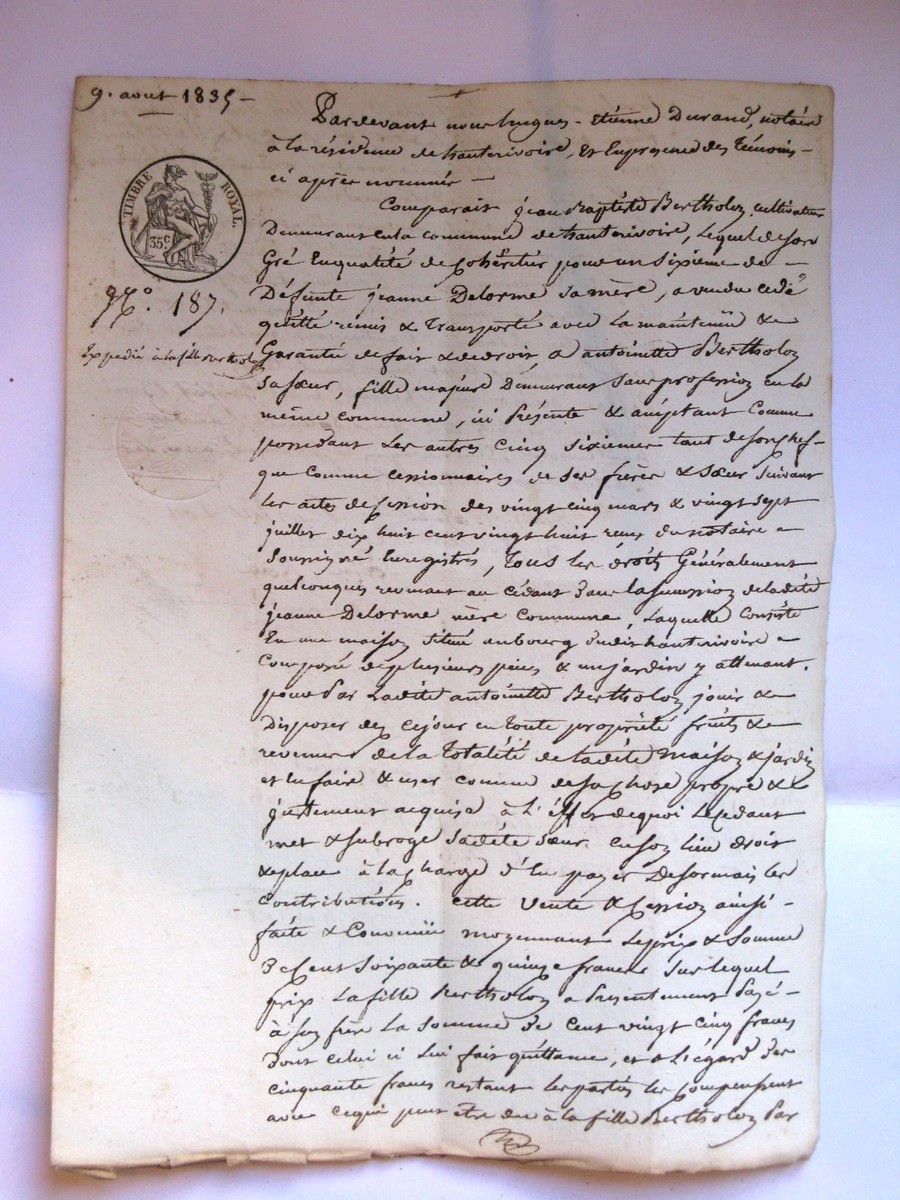 9. aout 1835 -
TIMBRE ROYAL.
35c
N.º 187.
Expédié à la fille Bertholon
Pardevant nous hugues - etienne Durand, notaire
à la résidence de hauterivoire, et En presence des témoins -
ci après nommés -
Comparait jean Baptiste Bertholon, cultivateur
Demeurant en la commune de hauterivoire, Lequel de son
Gré En qualité de Cohéritier pour un sixieme de -
Défunte jeanne Delorme sa mère, a vendu cédé
quitté remis & transporté avec la maintenüe &
Garantie de fait & de droit, a antoinette Bertholon
sa sœur, fille majure Demeurant sans profession en la
même commune, ici Présente & acceptant Comme
possedant Les autres cinq sixiemes tant de son chef -
que comme cessionnaires de ses frères & sœurs suivant
les actes de Cession des vingt cinq mars & vingt sept
juillet dix huit cent vingt huit reçus du notaire -
soussigné Enregistrés, tous les droits Généralement
quelconques revenant au cédant dans la succession de ladite
jeanne Delorme mère Commune, Laquelle Consiste
En une maison située au bourg dudit hauterivoire -
Composée de plusieurs pièces & un jardin y attenant.
pour Par Ladite antoinette Bertholon jouir &
Disposer dez ce jour en toute propriété fruits &
revenus de la totalité de ladite maison & jardin
et En faire & user comme de sa chose propre &
justement acquise à L'effet de quoi Le cedant
met & subroge sadite sœur en son lieu droit
& place à la charge d'En payer Desormais les
Contributions. Cette Vente & Cession ainsi -
faite & Convenüe moyennant Le prix & Somme
de Cent soixante & quinze francs sur lequel
prix La fille Bertholon a Presentement Payé -
à son frère La somme de Cent vingt cinq francs
dont celui ci Lui fait quittance, et a L'égard des
cinquante francs restant les parties les Compensent
avec ce qui peut être du à la fille Bertholon Par